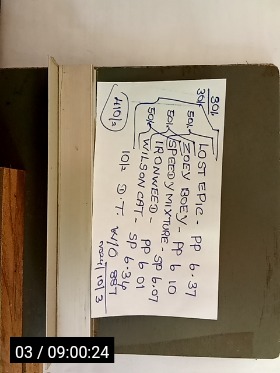 80/-
30/-
LOST EPIC - PP 6.37
50/- ZOEY BOEY - PP 6 10
50/- SPEEDY MIXTURE - SP 6.07
50/- IRONWEED - PP 6 01
WILSON CAT - SP 6.34
10/- D.T. W/O 887
10/3
410/2
03 / 09:00:24